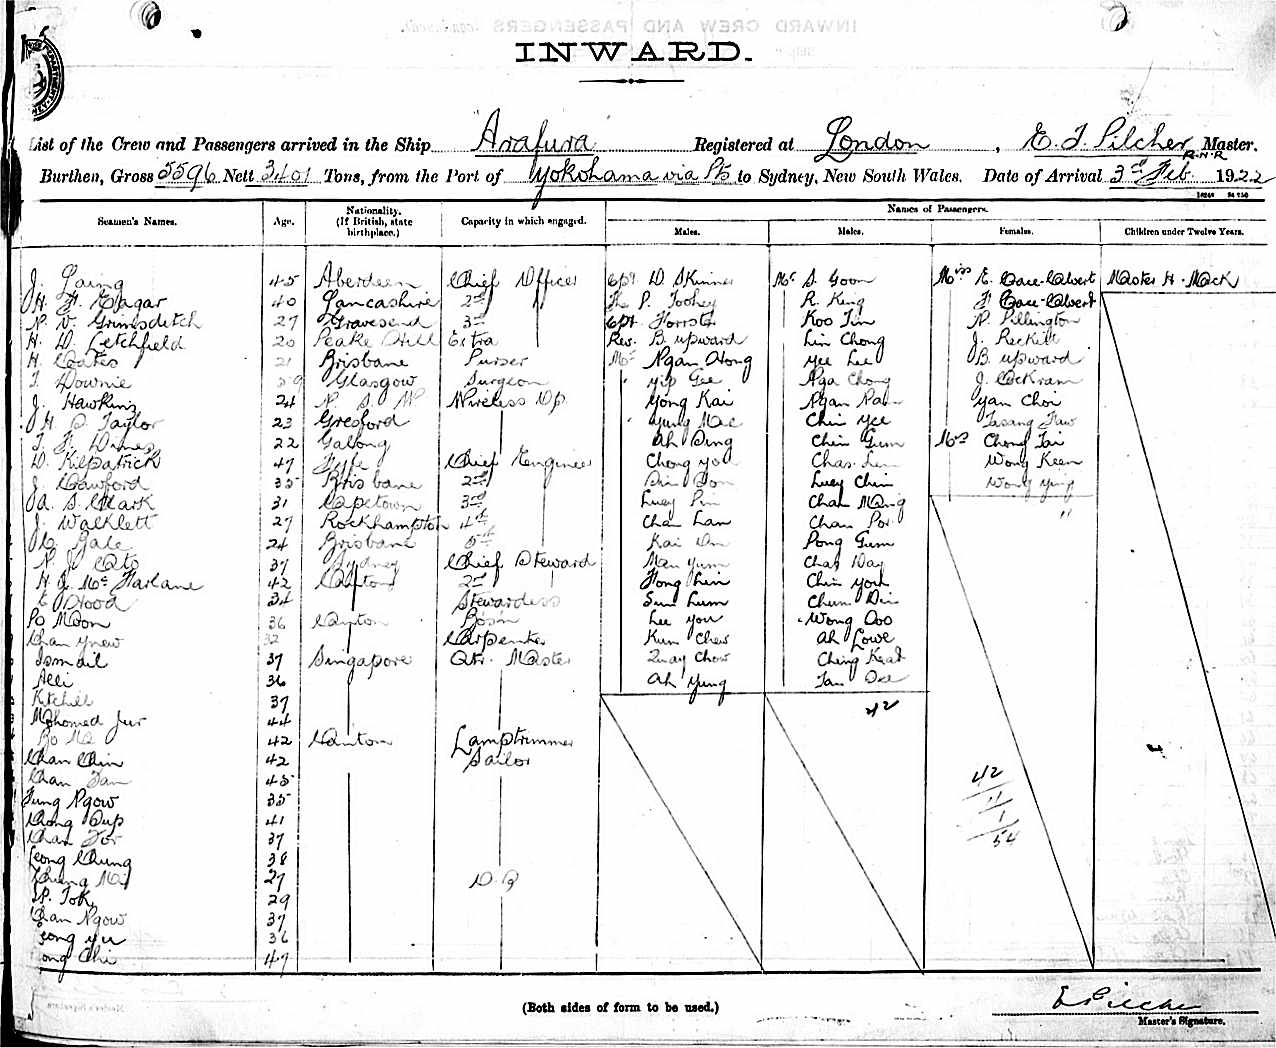 INWARD.
List of the Crew and Passengers arrived in the Ship Arafura Registered at London, E. T. Pilcher Master. R.N.R
Burthen, Gross 5596 Nett 3401 Tons, from the Port of Yokohama via Pts to Sydney, New South Wales. Date of Arrival 3rd Feb 1922
Names of Passengers.
Seamen's Names. Age. Nationality. (If British, state birthplace.) Capacity in which engaged. Males. Males. Females. Children under Twelve Years.
J. Laing 45 Aberdeen Chief Officer Cpt. D Skinner Mr S. Goon Miss E. Cave-Calvert Master H. Mack
H. F. Edgar 40 Lancashire 2nd P. Toohey R. King F Cave-Calvert
N. V. Grimsditch 27 Gravesend 3rd Cpt. Koo Tim N. Pillington
H. D. Letchfield 20 Peake Hill Extra Rev. B. Upward Lin Chong J. Reckitt
H. Coates 21 Brisbane Purser Mr Ngan Hong Yee Lee B. Upward
T. Downie 59 Glasgow Surgeon Yip Gee Nga Chong J. Cockram
J. Hawkins 24 N S W Wireless Op Yong Kai Ngan Yan Choi
H. D Taylor 23 Gresford Yung Mae Chin Yee
22 Galong Ah Ding Chin Gum Mrs Chong Tai
D. Kilpatrick 47 Fife Chief Engineer Chong You Chas. Wong Keen
J. Crawford 35 Brisbane 2nd Luey Chin Wong Ying
A. S. Clark 31 Capetown 3rd Luey Chak "
J. Walklett 27 Rockhampton 4th Cha Lan Chan Poi
Gale 24 Brisbane 5th Kai Pong Gum
N. J. 37 Sydney Chief Steward Man Yum Chas Day
H. J. McFarlane 42 2nd Fong Lein Chin You
E Hood 34 Stewardess Sun Lum Chun
Po Moon 36 Canton Bosn Lee You Wong Coo
Chan Ynew 32 Carpenter Kum Chew Ah Lowe
Ismail 37 Singapore Qtr. Master Quay Chow Ching Keat
Alli 36 Ah Yung Tan
Kitchil 37
Mohomed Jur 44 42
42 Canton Lamptrimmer
Chan Chin 42 Sailor
Chan Tan 45 42
Fung Ngow 35 11
Chong Sup 41 1
Chan For 37 54
Leong Chung 38
Cheung 27
Tok 29
Chan Ngow 37
36
47
(Both sides of form to be used.)
E Pilcher
Master's Signature.